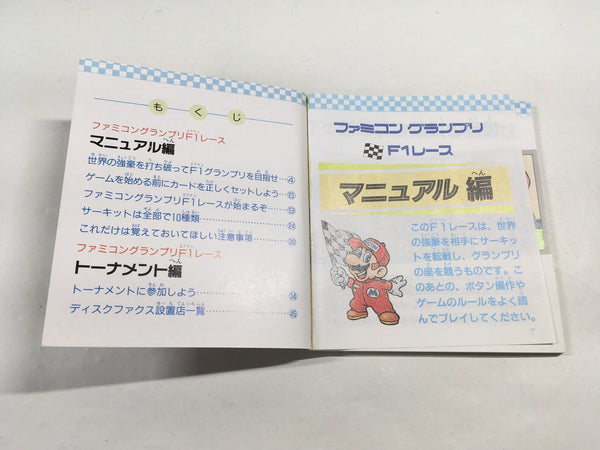 もくじ
ファミコングランプリF1レース
マニュアル編
世界の強豪を打ち破ってF1グランプリを目指せ…④
ゲームを始める前にカードを正しくセットしよう…⑮
ファミコングランプリF1レースが始まるぞ
サーキットは全部で10種類
これだけは覚えておいてほしい注意事項
ファミコングランプリF1レース
トーナメント編
トーナメントに参加しよう
ディスクファクス設置店一覧
ファミコン グランプリ
F1レース
マニュアル 編
このF1レースは、世界
の強豪を相手にサーキッ
トを転戦し、グランプリ
の座を競うものです。こ
のあとの、ボタン操作や
ゲームのルールをよく読
んでプレイしてください。